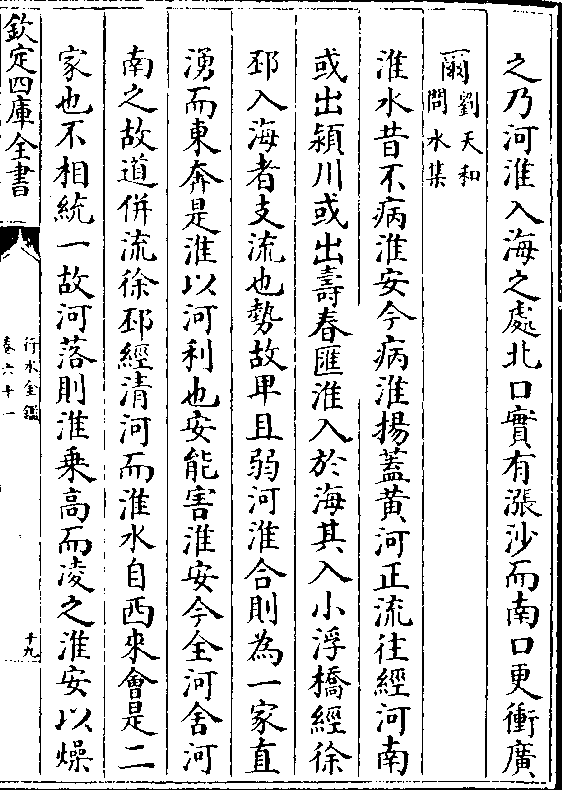 之乃河淮入海之處北口實有漲沙而南口更衝廣
爾劉天和
問水集
淮水昔不病淮安今病淮揚蓋黄河正流往經河南
或出潁川或出壽春匯淮入於海其入小浮橋經徐
邳入海者支流也勢故卑且弱河淮合則為一家直
湧而東奔是淮以河利也安能害淮安今全河舍河
南之故道併流徐邳經清河而淮水自西來會是二
家也不相統一故河落則淮乗高而凌之淮安以燥
欽定四庫全書
行水金鑑
卷六十一
十九